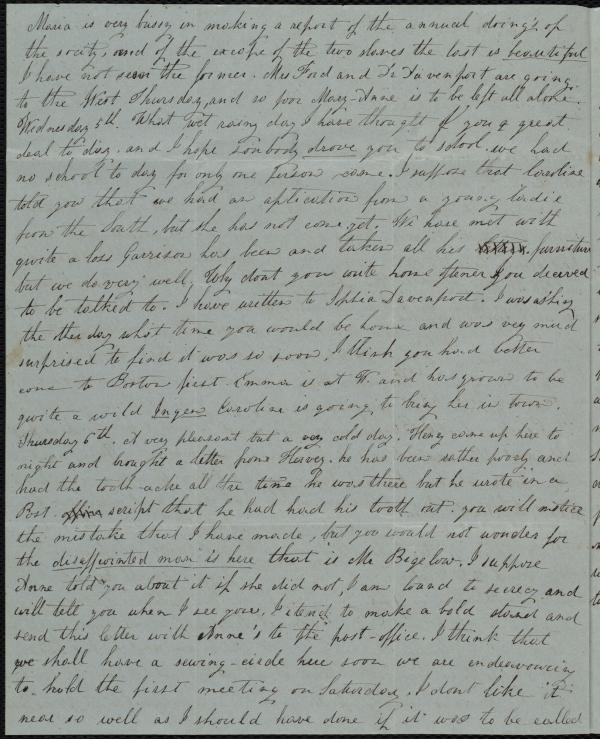 Maria is very bussy in making a report of the annual doing's of
the socity, and of the excape of the two slaves the last is beautiful
I have not seen the former. Mrs Ford and Dr Davenport are going
to the West Thursday, and so poor Mary-Anne is to be left all alone.
Wednesday 5th. What wet rainy day I have thought of you a great
deal to day. and I hope sombody drove you to school. we had
no school to day for only one person came. I suppose that Caroline
told you that we had an aplication from a young ladie
from the South, but she has not come yet. We have met with
quite a loss Garrison has been and taken all his furniture
but we do very well. Why dont you write home oftener you deserved
to be talked to. I have written to Sophia Davenport. I was asking
the other day what time you would be home and was very much
surprised to find it was so soon. I think you had better
come to Boston first. Emma is at W. and has grown to be
quite a wild Ingen Caroline is going to bring her in town.
Thursday 6th. A very pleasant but a very cold day. Henry came up here to
night and brought a letter from Hervey. he has been rather poorly and
had the tooth-ache all the time he was there but he wrote in a
Post. script that he had had his tooth out. you will notice
the mistake that I have made, but you would not wonder for
the disappointed man is here that is Mr Bigelow. I suppose
Anne told you about it if she did not, I am bound to secrecy and
will tell you when I see you. I itend to make a bold stand and
send this letter with Anne's to the post-office. I think that
we shall have a sewing-circle here soon we are endeavouring
to hold the first meeting on Saturday. I dont like it
near so well as I should have done if it was to be called